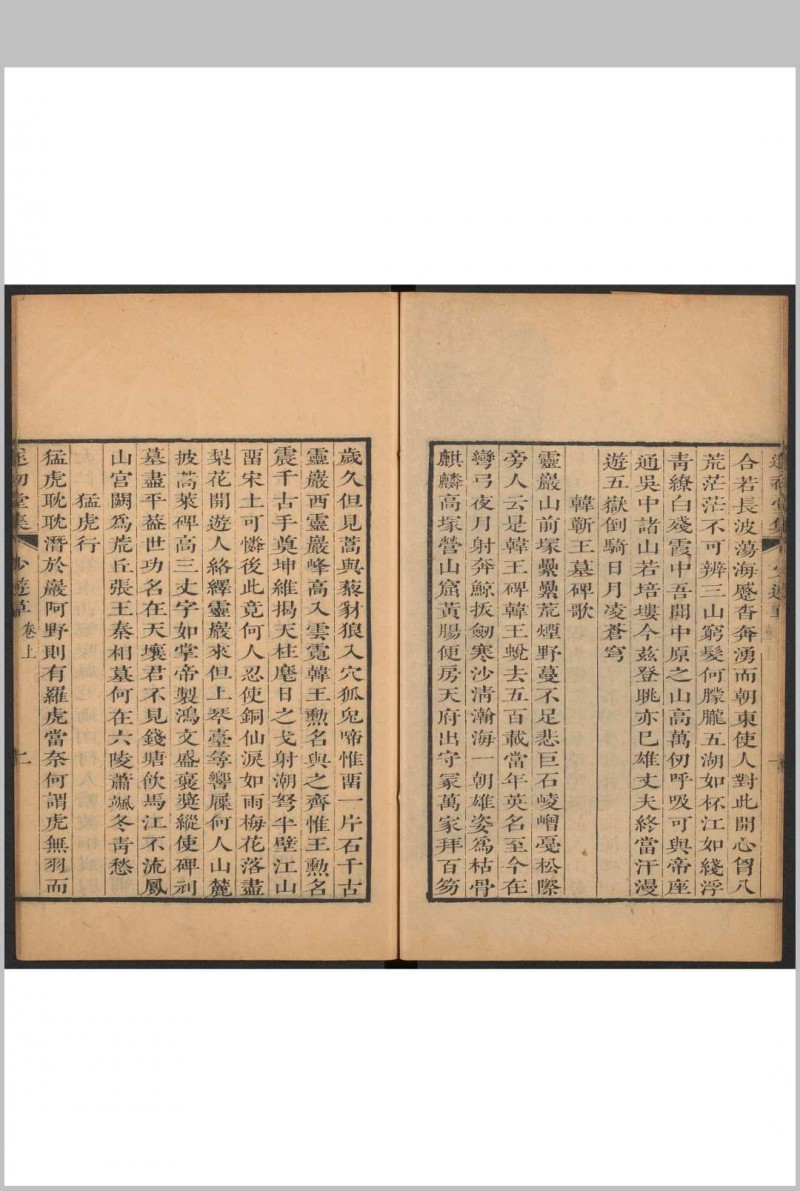 合若長波蕩海蹙沓奔湧而朝東使人對此開心胷八
荒茫茫不可辨三山窮髮何朦朧五湖如杯江如綫浮
青繚白殘霞中吾聞中原之山高萬仞呼吸可與帝座
通吳中諸山若培塿今兹登眺亦已雄丈夫終當汗漫
遊五嶽倒騎日月凌蒼穹
韓蘄王墓碑歌
靈巖山前塚纍纍荒煙野蔓不足悲巨石崚嶒戞松際
旁人云是韓王碑韓王蛻去五百載當年英名至今在
彎弓夜月射奔鯨扳劒寒沙淸瀚海一朝雄姿爲枯骨
麒麟高塚營山窟黃腸便房天府出守冢萬家拜百笏
歲久但見蒿與藜豺狼入穴狐兔啼惟畱一片石千古
靈巖西靈巖峰高入雲霓韓王勲名與之齊惟王勲名
震千古手奠坤維揭天柱麾日之戈射潮弩半壁江山
畱宋土可憐後此竟何人忍使銅仙淚如雨梅花落盡
梨花開遊人絡繹靈巖來但上琴臺尋響屧何人山麓
披蒿萊碑高三丈字如掌帝製鴻文盛襃奬縱使碑刓
墓盡平葢世功名在天壤君不見錢塘飲馬江不流鳳
山宮闕爲荒丘張王秦相墓何在六陵蕭颯冬靑愁
猛虎行
猛虎耽耽潛於巖阿野則有羅虎當奈何謂虎無羽而
遂初堂集 少遊草 卷上 十一